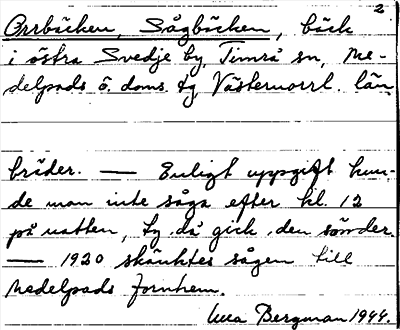 2
Orrbäcken, Sågbäcken, bäck
i östra Svedje by, Timrå sn, Me-
delpads ö. doms. tg, Västernorrl. län
bräder. — Enligt uppgift kun-
de man inte såga efter kl. 12
på natten, ty då gick den sönder.
— 1920 skänktes sågen till
Medelpads Fornhem.
Ulla Bergman 1944.